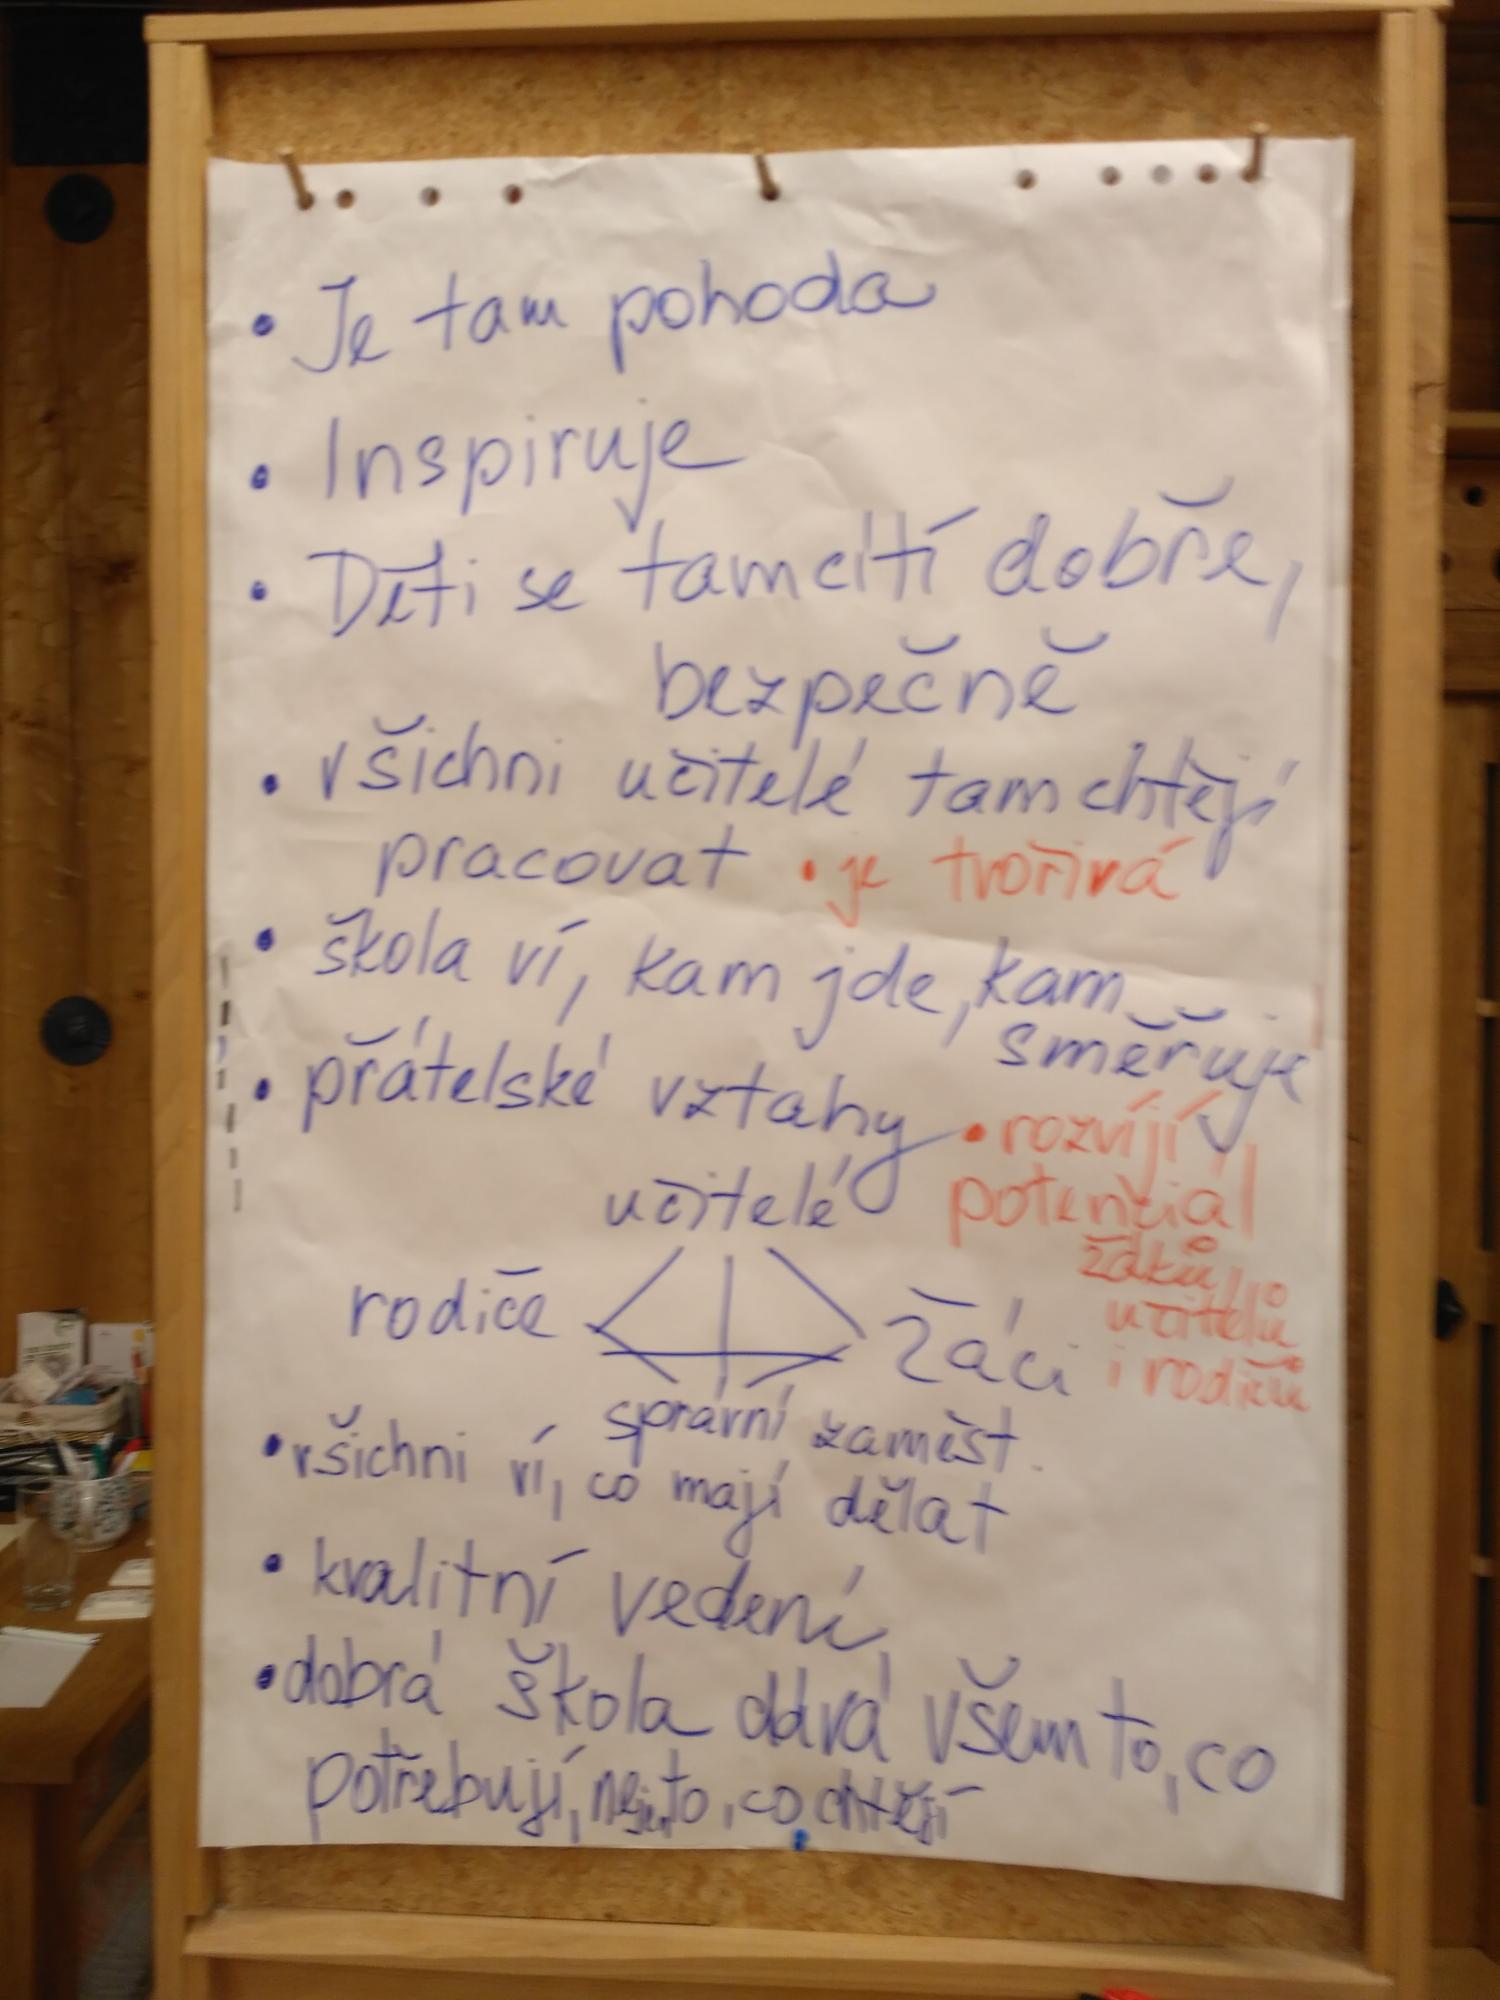 • Je tam pohoda
• Inspiruje
• Děti se tam cítí dobře,
bezpečně
• všichni učitelé tam chtějí
pracovat • je tvořivá
• škola ví, kam jde, kam
směřuje
• přátelské vztahy
• rozvíjí
potenciál
žáků
učitelů
i rodičů
učitelé
rodiče
žáci
správní zaměst.
• všichni ví, co mají dělat
• kvalitní vedení
• dobrá škola dává všem to, co
potřebují, nejen to, co chtějí